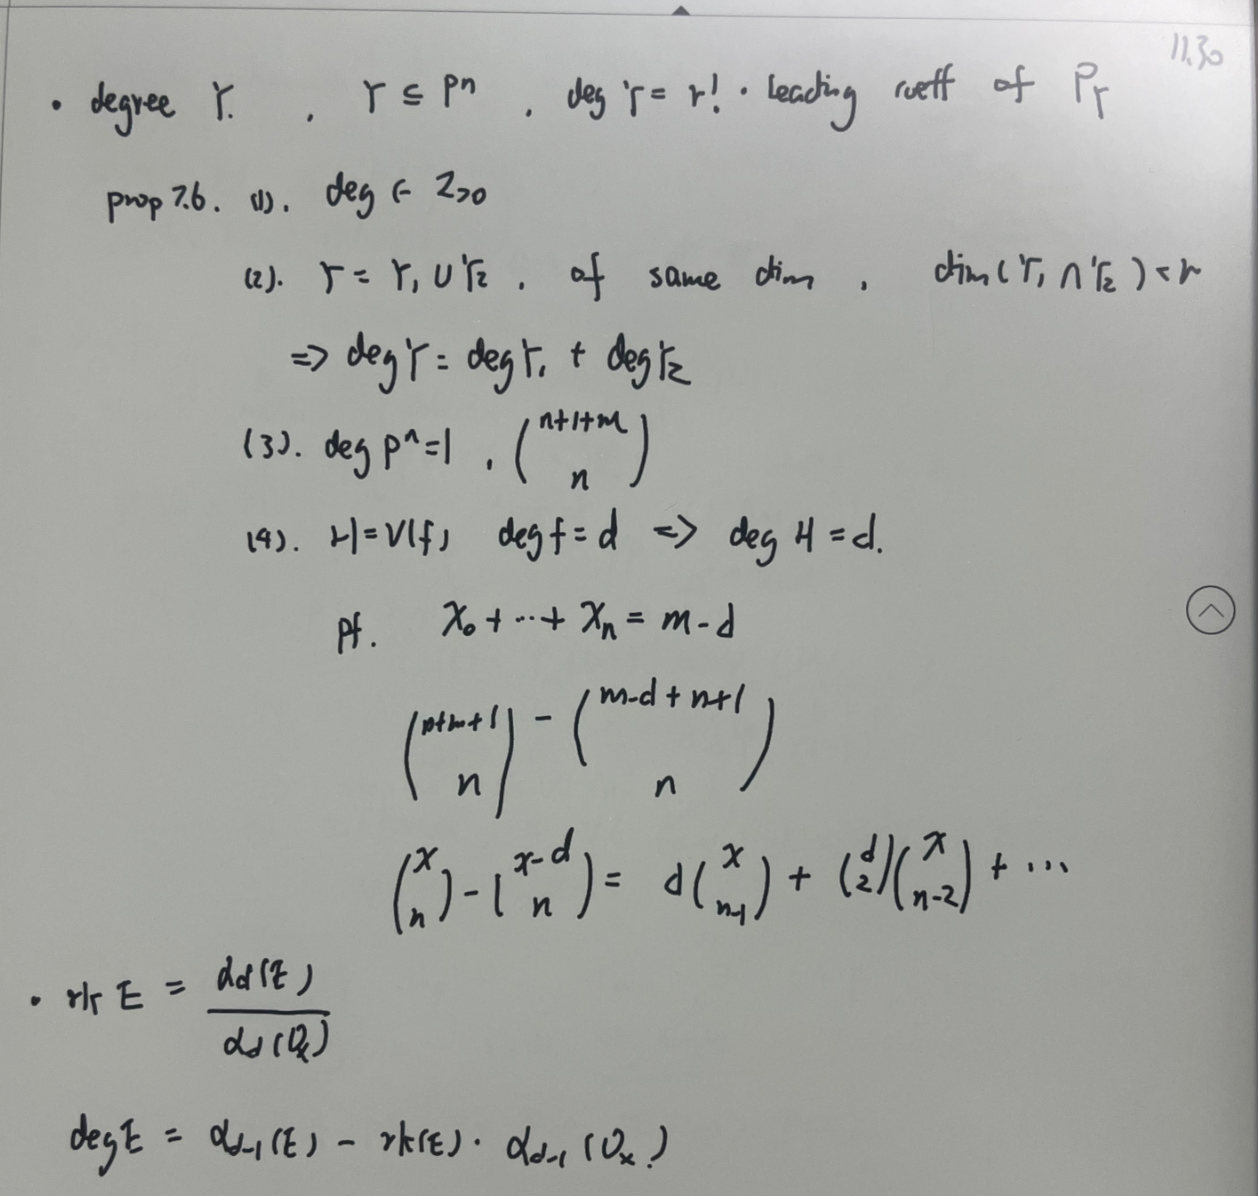 11.30
• degree Y. , Y ⊆ Pⁿ , deg Y = r! · leading coeff of P_Y
prop 7.6. (1). deg ∈ Z>0
(2). Y = Y₁ ∪ Y₂ , of same dim , dim(Y₁ ∩ Y₂) < r
=> deg Y = deg Y₁ + deg Y₂
(3). deg Pⁿ = 1 , (n+1+m n)
(4). H = V(f) deg f = d => deg H = d.
Pf. X₀ + ... + Xₙ = m - d
(n+m+1 n) - (m-d+n+1 n)
(x n) - (x-d n) = d(x n-1) + (d 2)(x n-2) + ...
• rk E = α_d(E) / α_d(O_x)
deg E = α_{d-1}(E) - rk(E) · α_{d-1}(O_x)